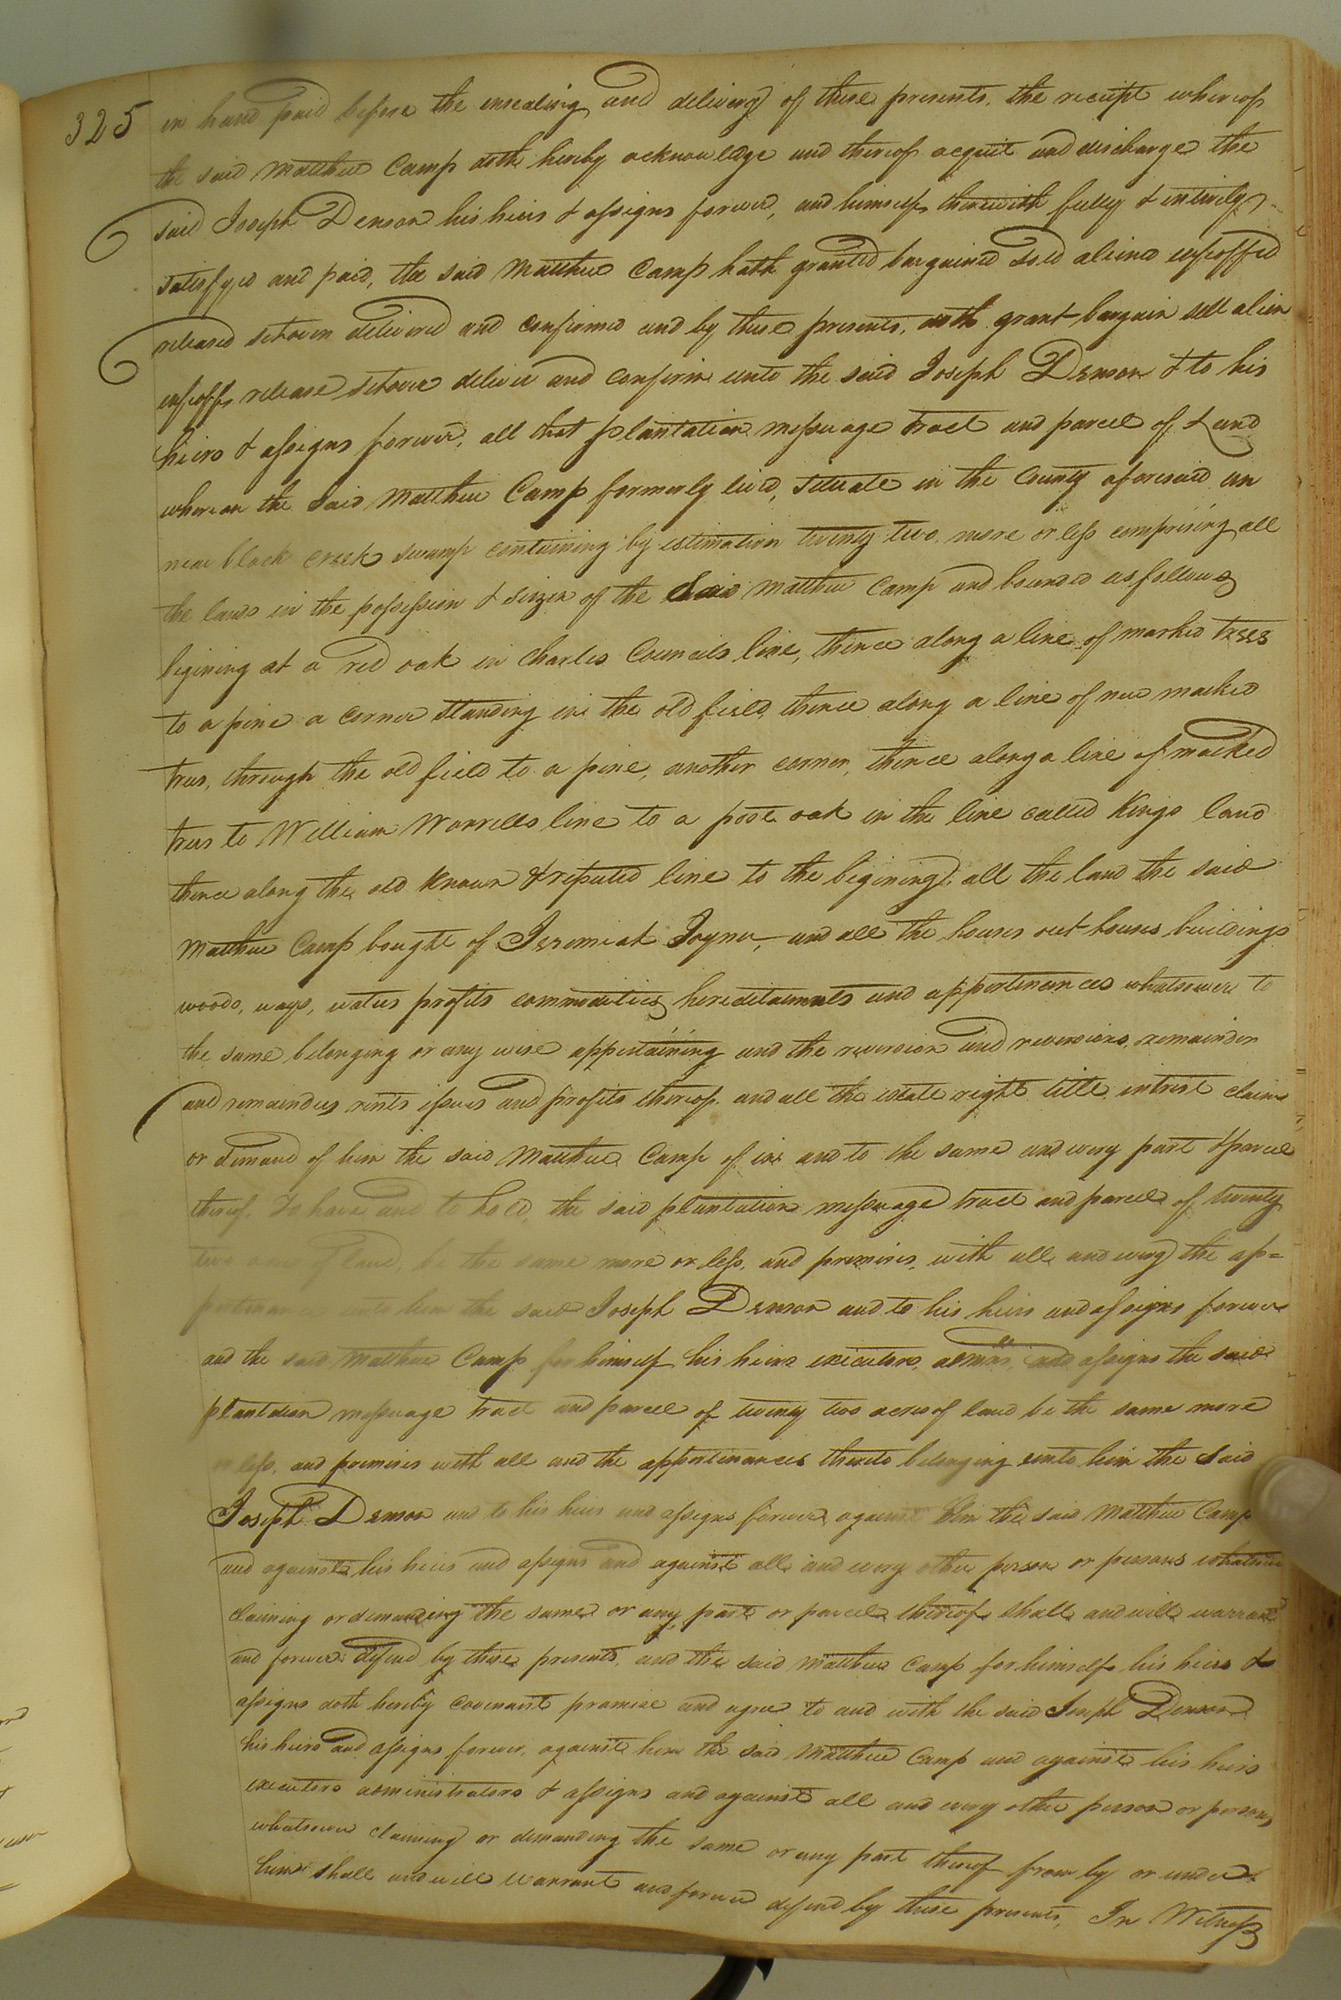 325
in hand paid before the ensealing and delivery of these presents, the receipt whereof
the said Matthew Camp doth hereby acknowledge and thereof acquit and discharge the
said Joseph Denson his heirs & assigns forever, and himself therewith fully & intirely
satisfyed and paid, the said Matthew Camp hath granted bargained sold aliened enfeoffed
released setover delivered and confirmed and by these presents, doth grant bargain sell alien
enfeoff, release, setover deliver and confirm unto the said Joseph Denson & to his
heirs & assigns forever, all that plantation messuage tract and parcel of Land
whereon the said Matthew Camp formerly lived, situate in the County aforesaid on
near black creek swamp containing by estimation twenty two more or less comprising all
the lands in the possession & siezen of the said Matthew Camp and bounded as follows
begining at a red oak in Charles Councils line, thence along a line of marked trees
to a pine a corner standing in the old field, thence along a line of new marked
trees, through the old field to a pine, another corner, thence along a line of marked
trees to William Worrells line to a post oak in the line called Kings land
thence along the old known & reputed line to the begining, all the land the said
Matthew Camp bought of Jeremiah Joyner, and all the houses out houses buildings
woods, ways, waters profits commodities hereditaments and appertinances whatsoever to
the same belonging or any wise appertaining and the reversion and reversions, remainder
and remainders rents issues and profits thereof and all the estate right title intrest claim
or demand of him the said Matthew Camp of in and to the same and every part & parcel
thereof. To have and to hold, the said plantation messuage tract and parcel of twenty
two acres of land, be the same more or less, and premises, with all and every the ap=
pertinances unto him the said Joseph Denson and to his heirs and assigns forever
and the said Matthew Camp for himself his heirs executors, admrs, and assigns the said
plantation messuage tract and parcel of twenty two acres of land be the same more
or less, and premises with all and the appertinances thereto belonging unto him the said
Joseph Denson and to his heirs and assigns forever against him the said Matthew Camp
and against his heirs and assigns and against all and every other person or persons whatsoever
claiming or demanding the same or any part or parcel thereof shall and will warrant
and forever defend by these presents, and the said Matthew Camp for himself his heirs &
assigns doth hereby covenant promise and agree to and with the said Joseph Denson
his heirs and assigns forever, against him the said Matthew Camp and against his heirs
executors administrators & assigns and against all and every other person or persons
whatsoever claiming or demanding the same or any part thereof from by or under
him shall and will warrant and forever defend by these presents, In Witness